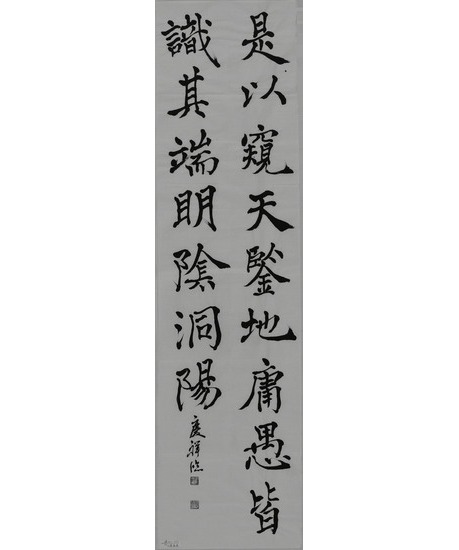 是以窺天鑒地庸愚皆
識其端明陰洞陽
慶祥臨